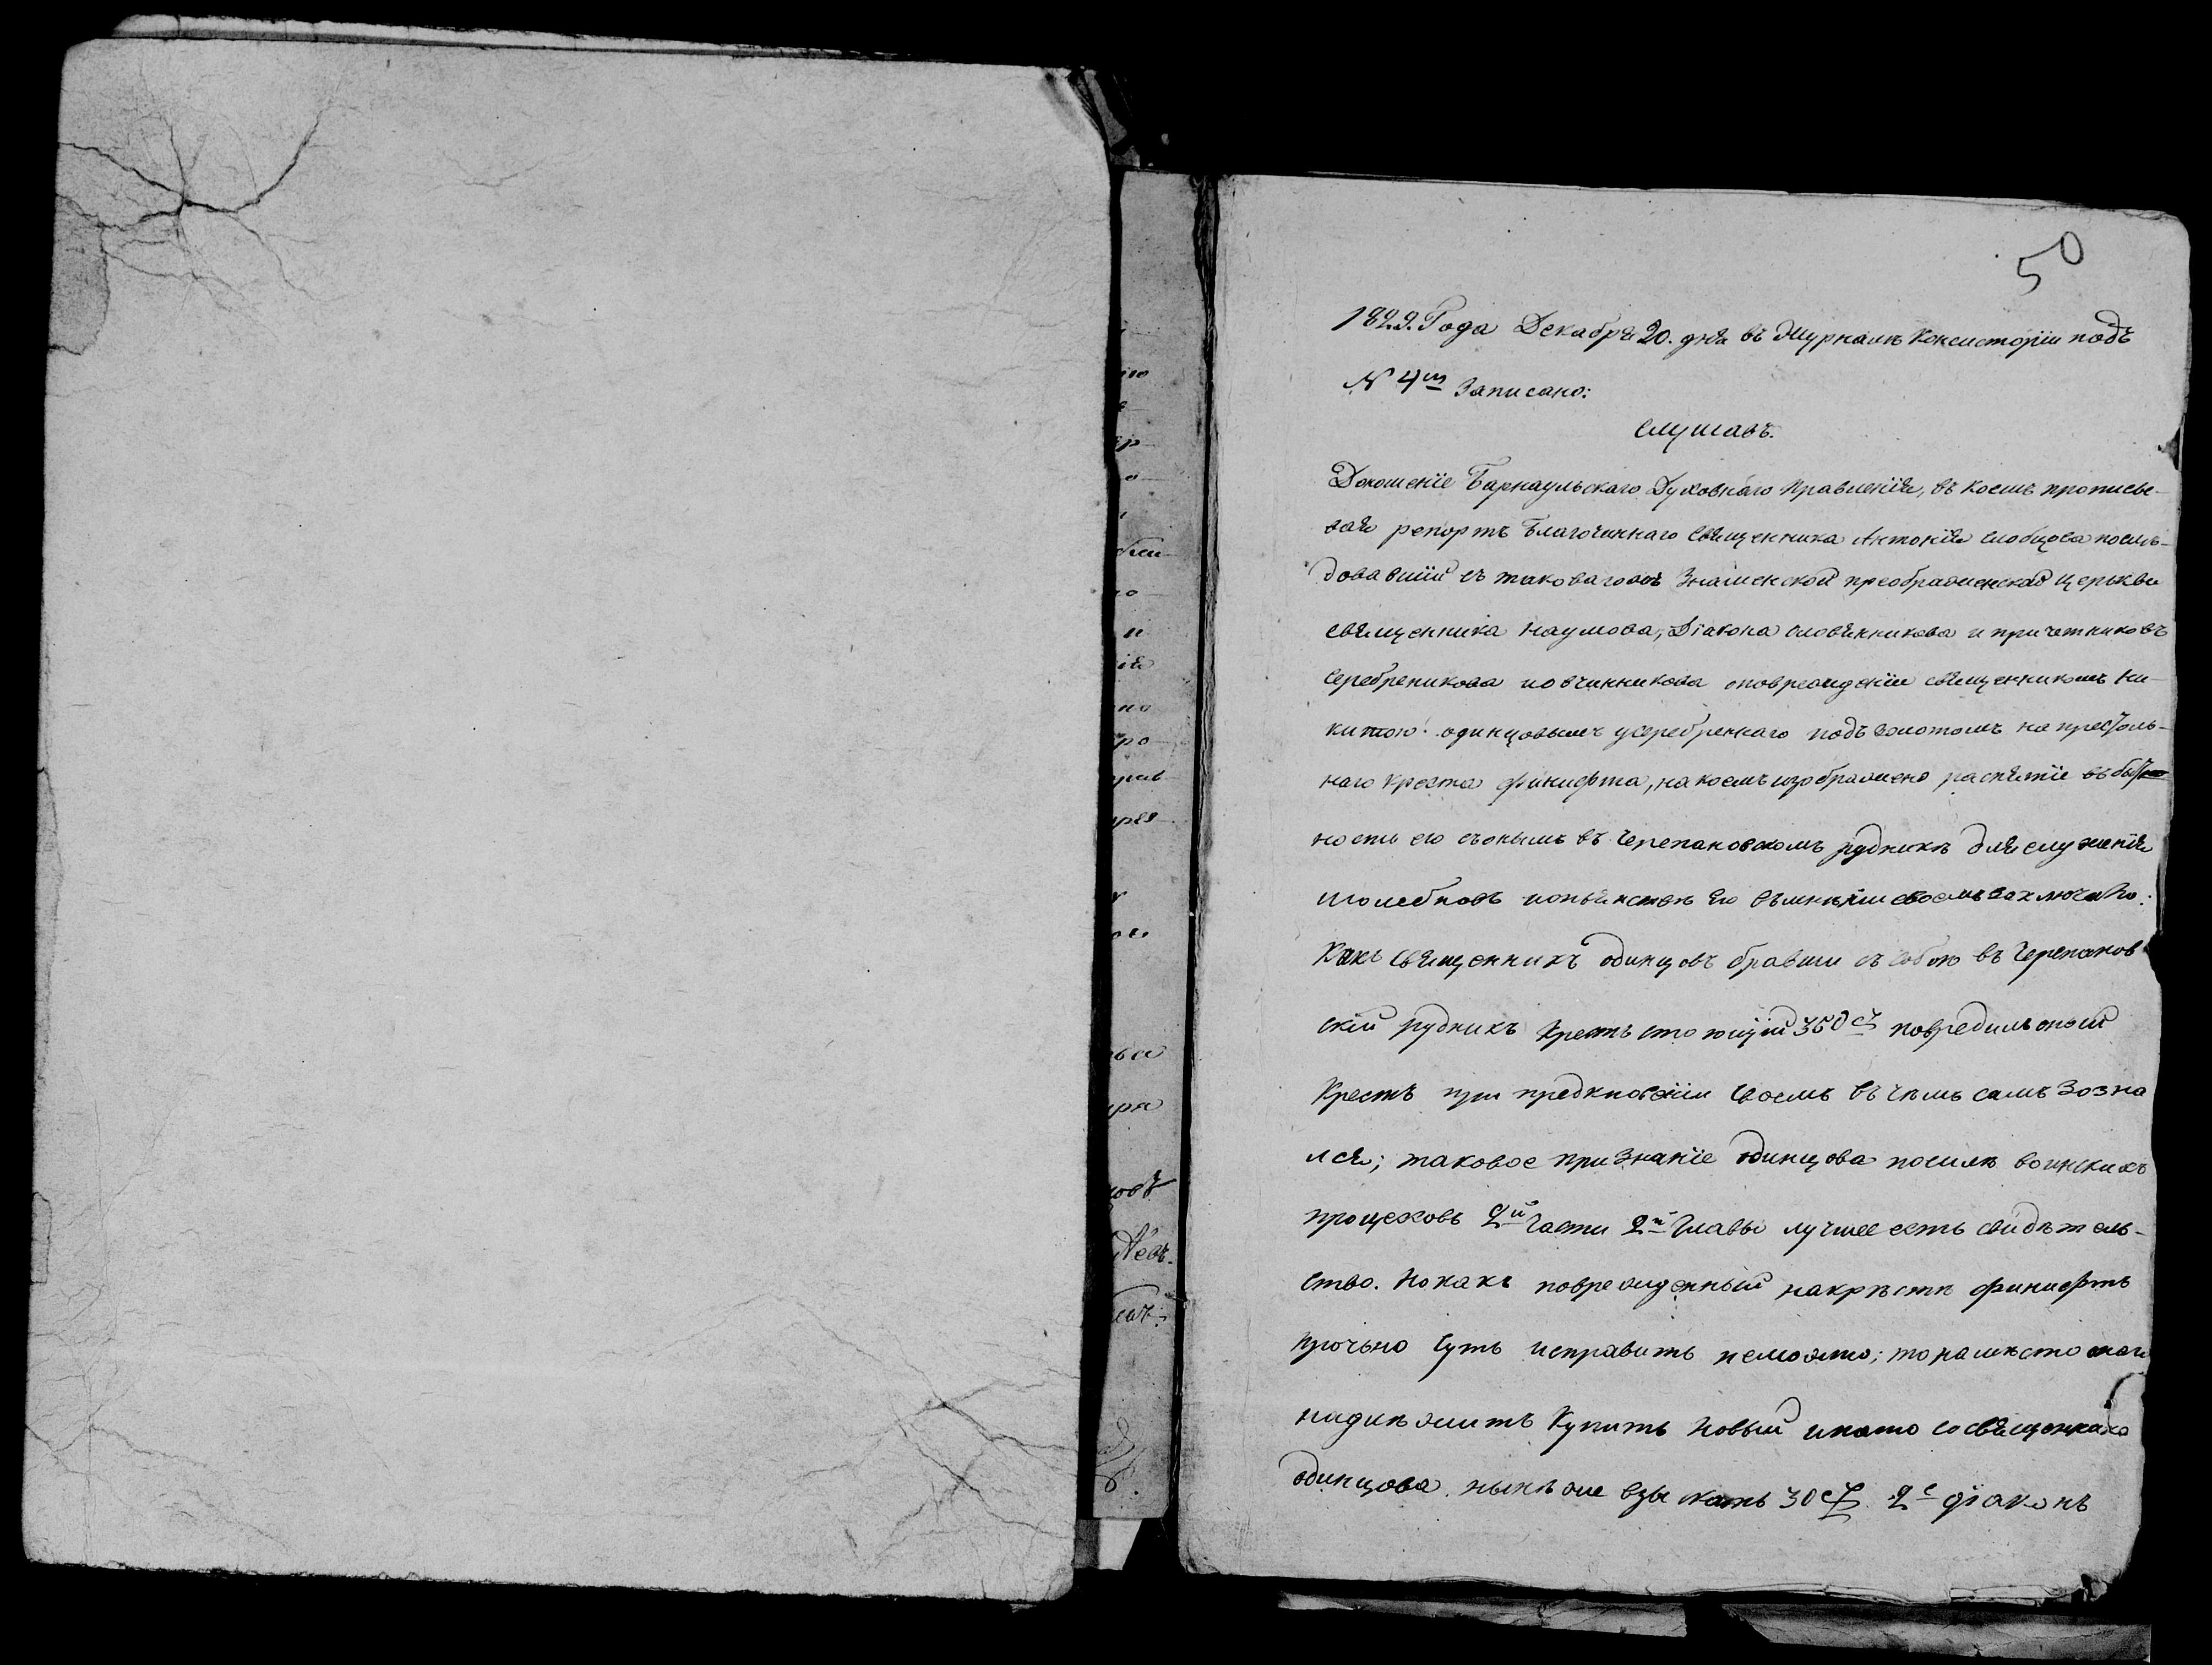 50
1829. Года Декабря 20. дня въ Журналѣ Консисторіи подъ
№ 4м Записано:
Слушавъ.
Доношеніе Барнаульскаго Духовнаго Правленія, въ коемъ прописы-
вая репортъ Благочиннаго Священника Антонія Слобцова послѣ-
довавшій съ таковагожъ Знаменской преображенской церькви
священника Наумова, Діакона Словянникова и причетниковъ
Серебреникова иовчинникова оповрежденіи священникомъ Ни-
китою одинцовымъ усеребреннаго подъ золотомъ на престоль-
наго Креста финифта, на коемъ изображено распятіе въ быт
ность его съонымъ въ Черепановскомъ рудникѣ для служенія
молебновъ ипьянствѣ Его Въмнѣніи своемъ заключило:
Какъ Священникъ одинцовъ бравши съ собою въ Черепанов
скій рудникъ Крестъ стоющій 350 повредилъ оной
Крестъ при предкновѣніи своемъ въ чемъ самъ Созна
лся; таковое признаніе одинцова посилѣ воинскихъ
процесовъ 2й Части 2й Главы лучшее есть свидѣтель-
ство. Но какъ поврежденный накрѣстѣ финифтъ
прочьно Суть исправить неможно; то намѣсто онаго
надлѣжитъ Купить Новый ипото Сосвященника
одинцова нынѣ же взыскать 30 2е діаконъ